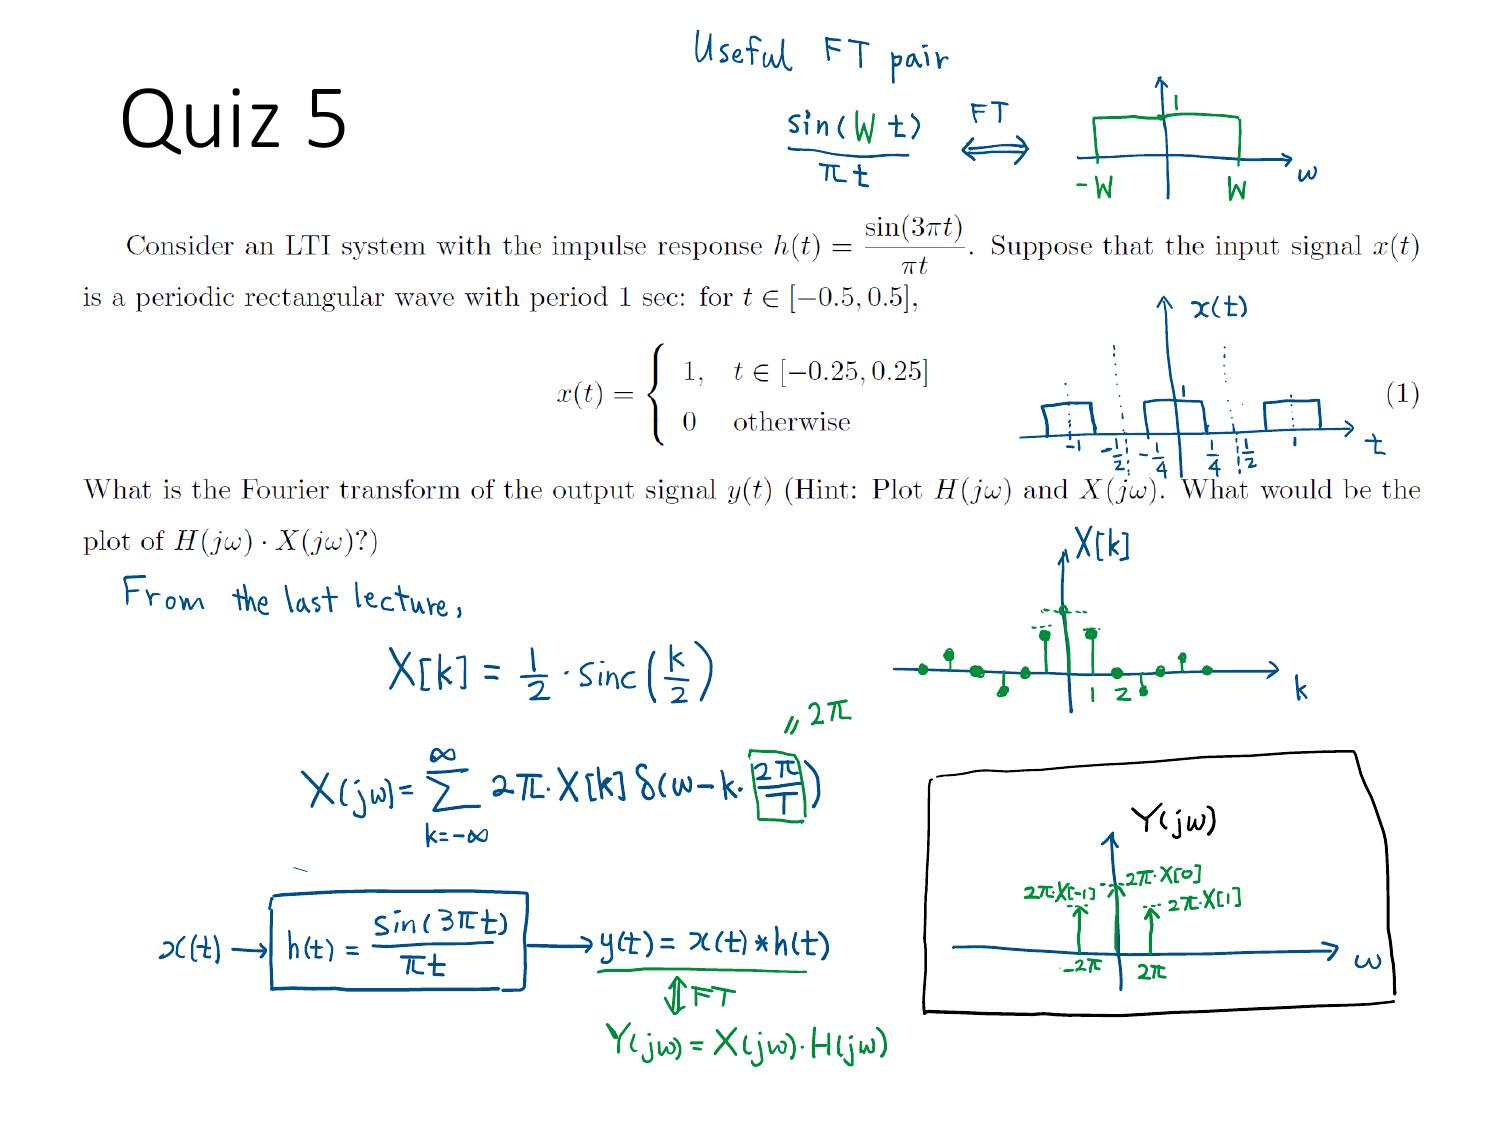 Useful FT pair
Quiz 5
sin(Wt)/πt FT ⟺ 1 -W W ω
Consider an LTI system with the impulse response h(t) = sin(3πt)/πt. Suppose that the input signal x(t)
is a periodic rectangular wave with period 1 sec: for t ∈ [−0.5, 0.5],
x(t)
x(t) = { 1, t ∈ [−0.25, 0.25]
0 otherwise
(1)
1
-1 -1/2 -1/4 1/4 1/2 1 t
What is the Fourier transform of the output signal y(t) (Hint: Plot H(jω) and X(jω). What would be the
plot of H(jω) · X(jω)?)
X[k]
From the last lecture,
X[k] = 1/2 · sinc(k/2)
1 2 k
= 2π
X(jω) = ∑_{k=-∞}^{∞} 2π·X[k] δ(ω-k·2π/T)
Y(jω)
2π·X[-1] 2π·X[0]
2π·X[1]
-2π 2π ω
x(t) → h(t) = sin(3πt)/πt → y(t) = x(t)*h(t)
⇕ FT
Y(jω) = X(jω)·H(jω)